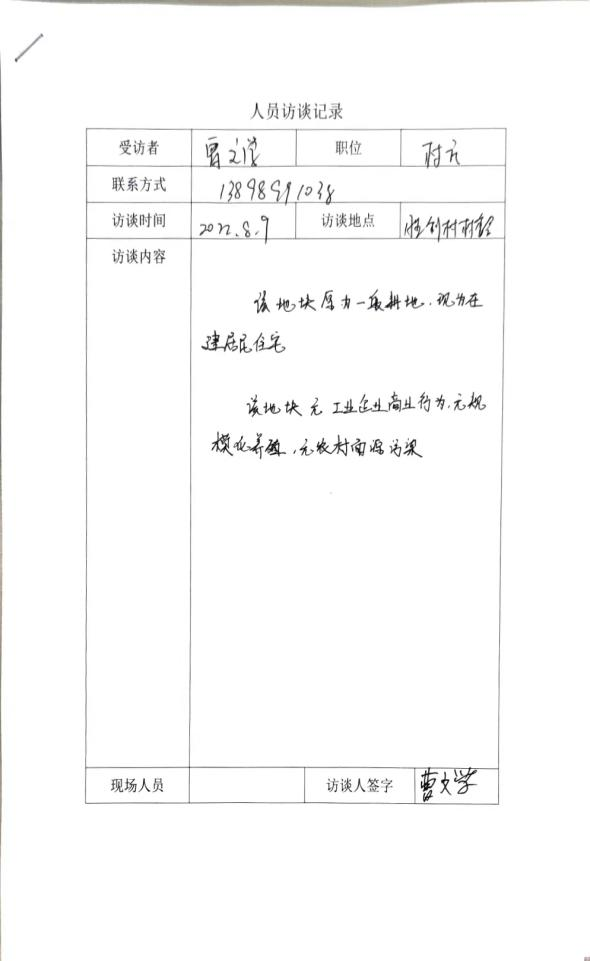 人员访谈记录
受访者 曹文学 职位 村民
联系方式
访谈时间 2022.8.9 访谈地点 创村村
访谈内容
该地块原为一般耕地,现为在
建居民住宅
该地块无工业企业商业行为,无规
模化养殖,无农村面源污染
现场人员 访谈人签字 曹文学